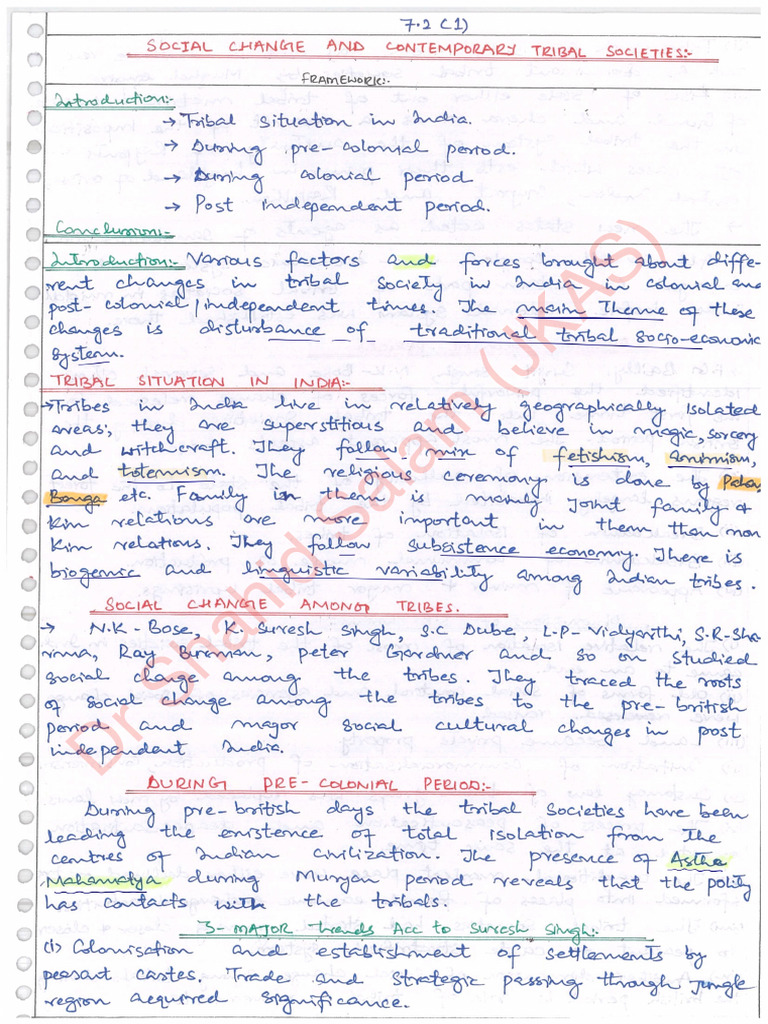 7.2 (1)
SOCIAL CHANGE AND CONTEMPORARY TRIBAL SOCIETIES:-
FRAMEWORK:-
Introduction:-
→ Tribal situation in India.
→ During pre-colonial period.
→ During colonial period
→ Post independent period.
Conclusion:-
Introduction:- Various factors and forces brought about diffe-
rent changes in tribal society in India in colonial and
post-colonial/independent times. The main Theme of these
changes is disturbance of traditional tribal socio-economic
system.
TRIBAL SITUATION IN INDIA:-
→ Tribes in India live in relatively geographically isolated
areas; they are superstitious and believe in magic-sorcery
and witchcraft. They follow mix of fetishism, animism,
and totemism. The religious ceremony is done by Pahan,
Bonga etc. Family in them is mainly Joint family &
Kin relations are more important in them than non
Kin relations. They follow subsistence economy. There is
biogenic and linguistic variability among Indian tribes.
SOCIAL CHANGE AMONG TRIBES.
→ N.K-Bose, K. Suresh Singh, S.C Dube, L.P-Vidyarthi, S.R-Sha-
rma, Ray Breman, Peter Gardner and so on studied
social change among the tribes. They traced the roots
of social change among the tribes to the pre-british
period and major social cultural changes in post
independent India.
DURING PRE-COLONIAL PERIOD:-
During pre-british days the tribal societies have been
leading the existence of total isolation from the
centres of Indian civilization. The presence of Astha
Mahamatya during Muryan period reveals that the polity
has contacts with the tribals.
3-MAJOR trends Acc to Suresh Singh:-
(i) Colonisation and establishment of settlements by
peasant castes. Trade and strategic passing through Jungle
region acquired significance.
Dr Shahid Salam (JKAS)